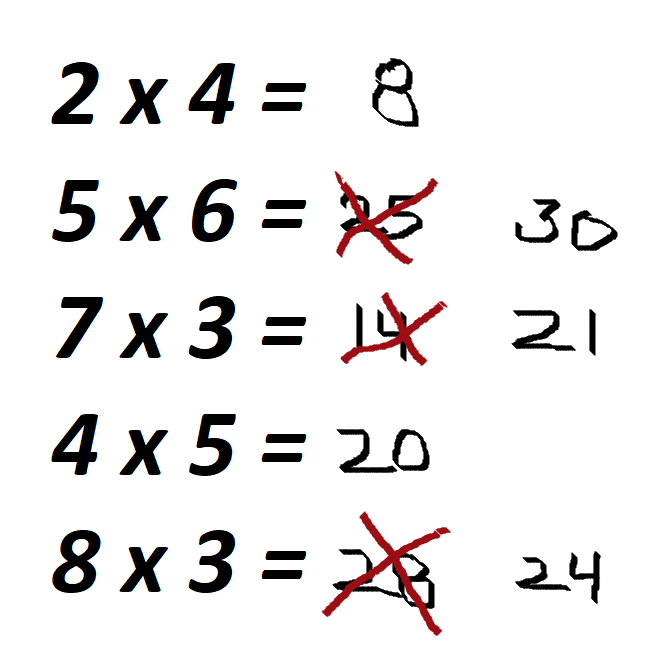 2 x 4 = 8
5 x 6 = 25 30
7 x 3 = 14 21
4 x 5 = 20
8 x 3 = 28 24